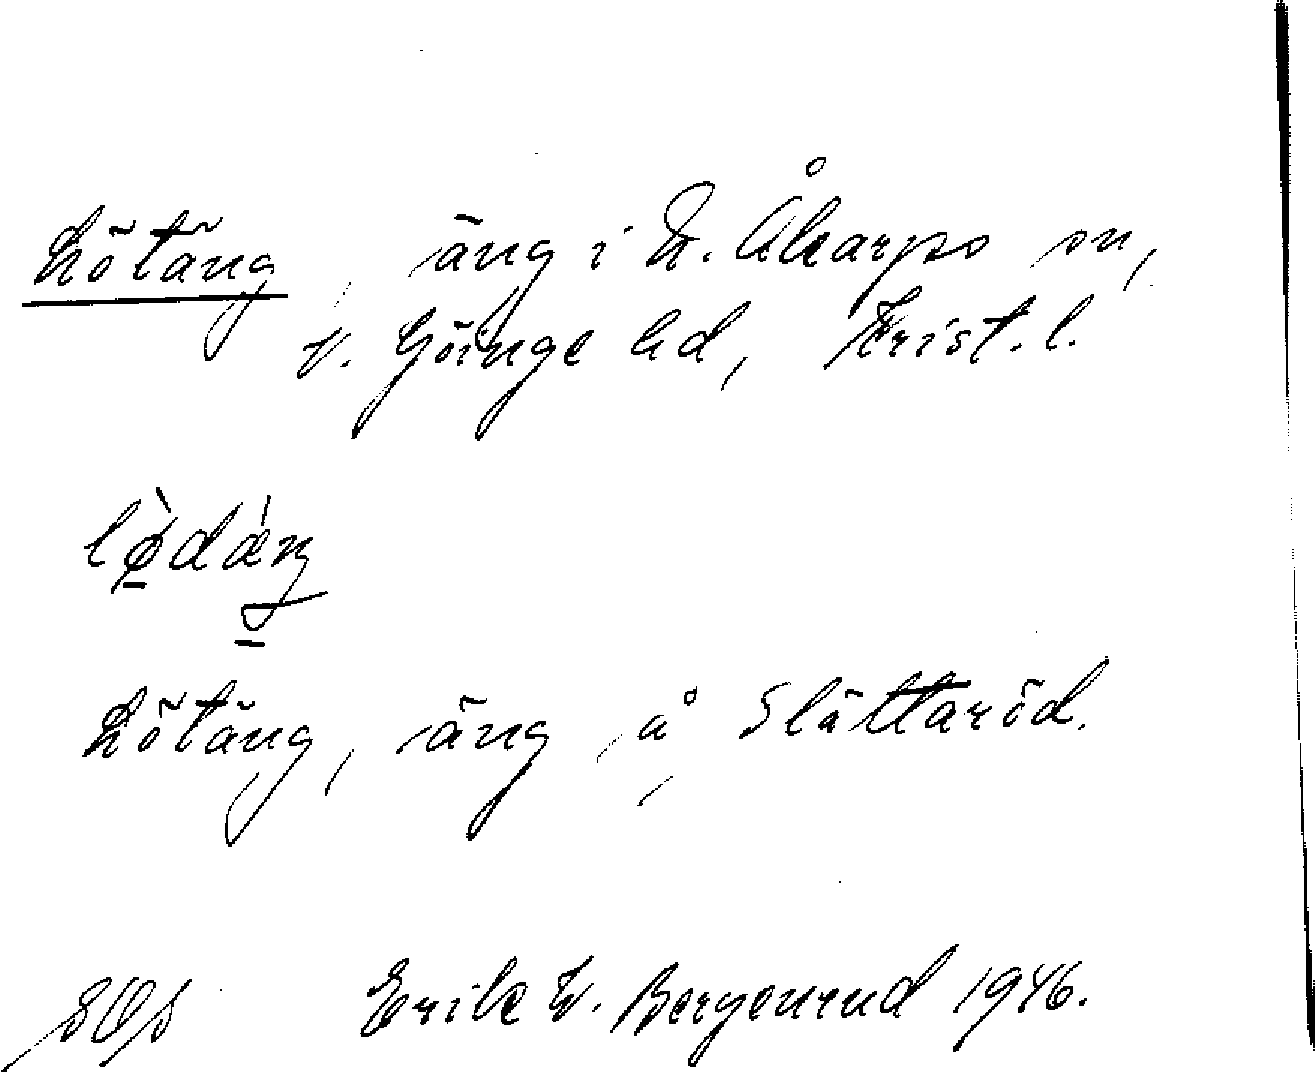 Lötäng, äng i N. Åkarps sn,
V. Göinge hd, Krist. l.
lø̀dǽŋ
Lötäng, äng å Slättaröd.
Erik W. Bergenrud 1946.